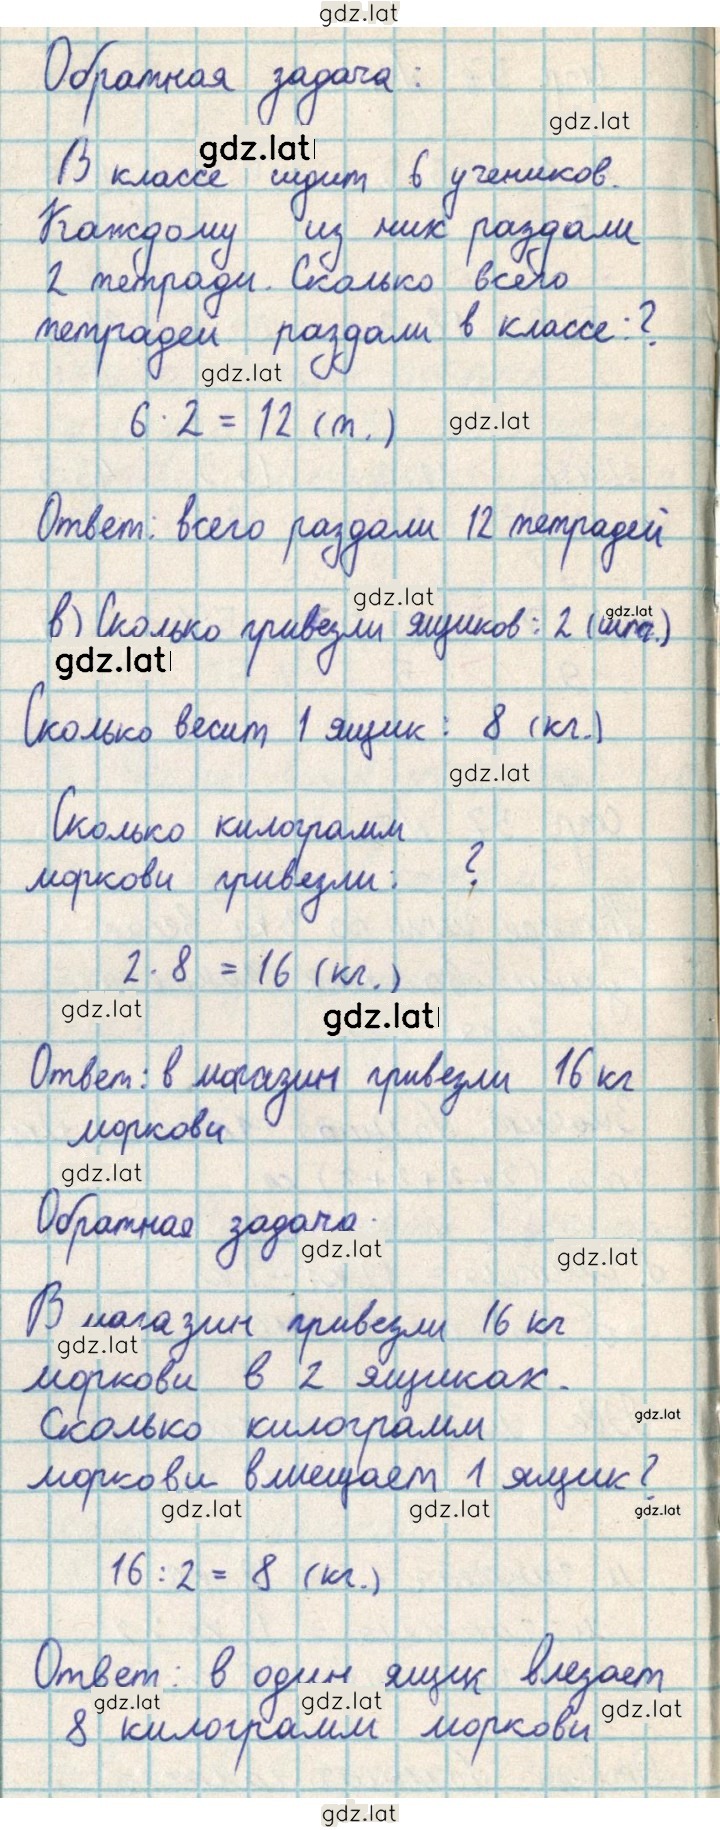 gdz.lat
Обратная задача:
gdz.lat
gdz.lat
В классе сидит 6 учеников.
Каждому из них раздали
2 тетради. Сколько всего
тетрадей раздали в классе:?
gdz.lat
6 · 2 = 12 (т.)
gdz.lat
Ответ: всего раздали 12 тетрадей
gdz.lat
gdz.lat
в) Сколько привезли ящиков: 2 (шт.)
gdz.lat
Сколько весит 1 ящик: 8 (кг.)
gdz.lat
Сколько килограмм
моркови привезли: ?
2 · 8 = 16 (кг.)
gdz.lat
gdz.lat
Ответ: в магазин привезли 16 кг
моркови
gdz.lat
Обратная задача.
gdz.lat
gdz.lat
В магазин привезли 16 кг
gdz.lat
моркови в 2 ящиках.
Сколько килограмм
gdz.lat
моркови вмещает 1 ящик?
gdz.lat
gdz.lat
gdz.lat
16 : 2 = 8 (кг.)
Ответ: в один ящик влезает
gdz.lat
gdz.lat
gdz.lat
8 килограмм моркови
gdz.lat